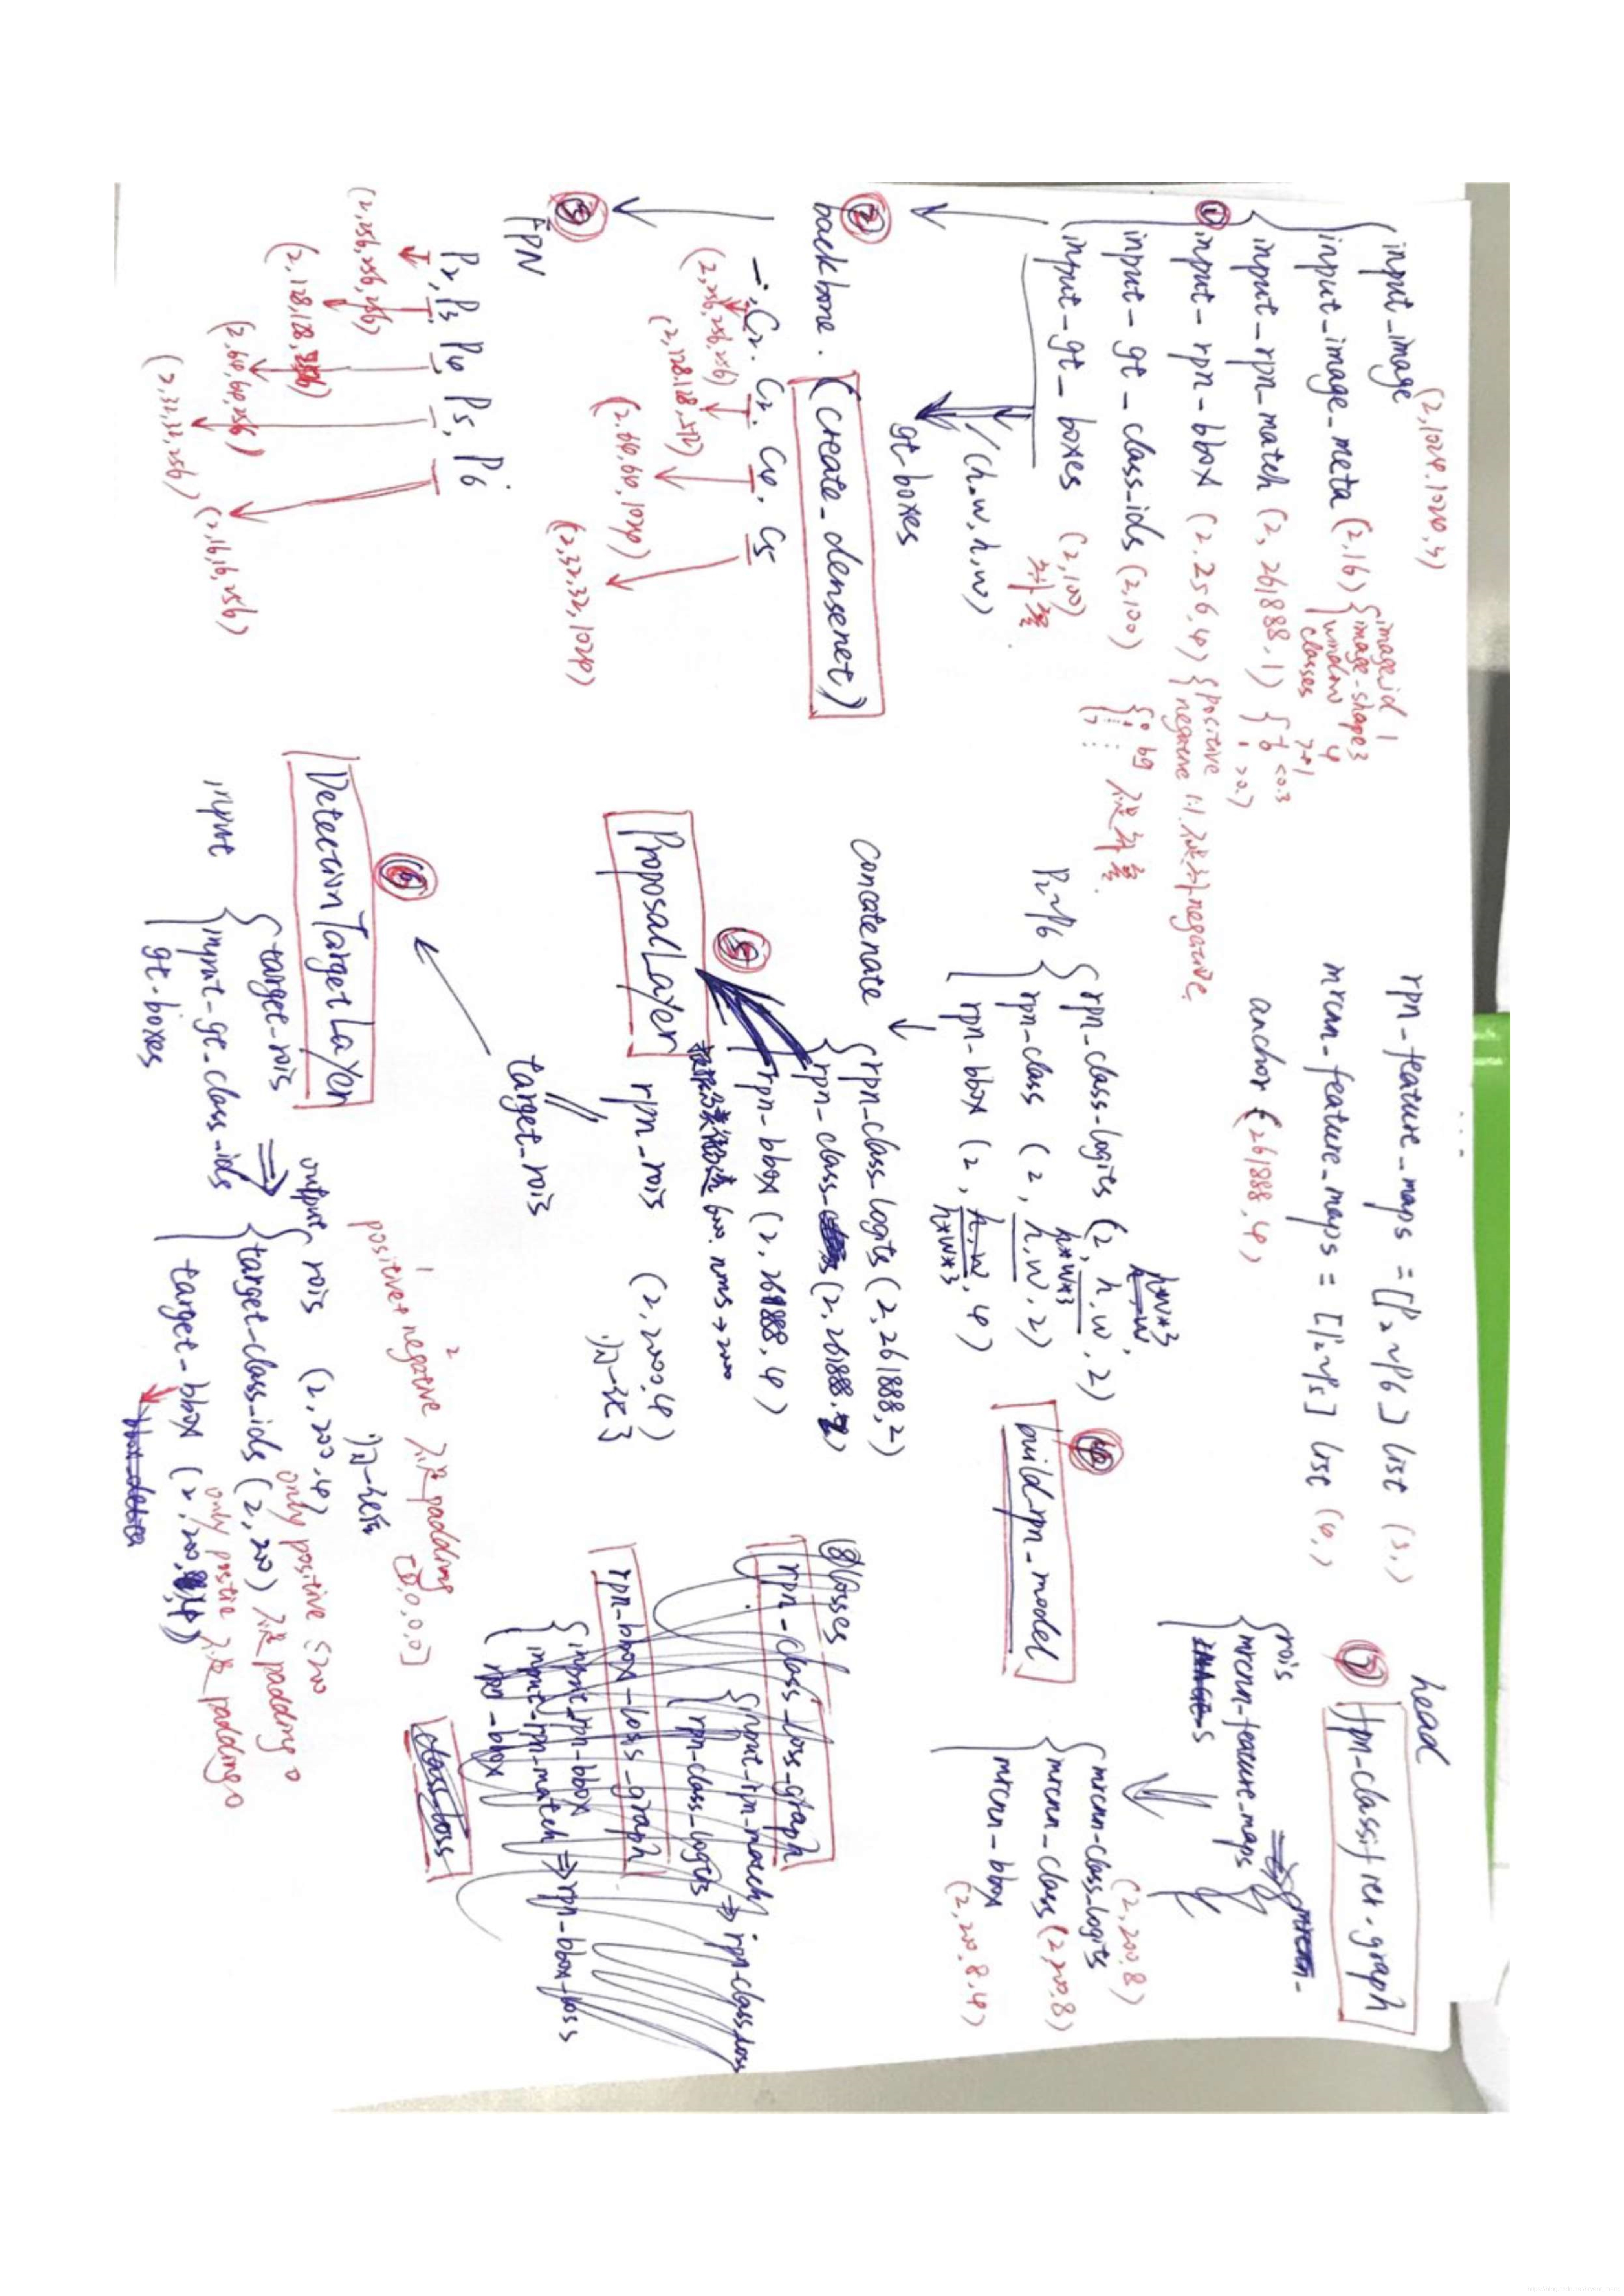 input_image (2,1024,1024,3)
input_image_meta (2,16) { image_id 1
image-shape 3
window 4
classes 7+1
① input_rpn_match (2, 261888, 1) { -1 <0.3
0
1 >0.7
input-rpn-bbox (2,256,4) { positive
negative 1:1
negative
input-gt-class-ids (2,100) { 0 bg
1
7
input-gt-boxes (2,100)
/(h,w,h,w)
gt-boxes
② backbone. (create_densenet)
C2. C3. C4. C5
(2,256,256,256)
(2,128,128,512)
(2,64,64,1024)
(2,32,32,1024)
③ FPN
P2, P3 P4 P5, P6
(2,256,256,256)
(2,128,128,256)
(2,64,64,256)
(2,32,32,256)
(2,16,16,256)
rpn_feature_maps = [P2~P6] list (5,)
mrcnn-feature_maps = [P2~P5] list (4,)
anchor (261888,4)
④ build_rpn_model
P2~P6 { rpn_class-logits (2, h,w, 2)
h*w*3
rpn-class (2, h,w, 2)
h*w*3
rpn-bbox (2, h,w, 4)
h*w*3
concatenate
rpn_class_logits (2,261888,2)
rpn-class (2,261888,2)
rpn-bbox (2,261888,4)
⑤ ProposalLayer
6000. nms→2000
rpn_rois (2,2000,4)
归一化
target_rois
⑥ DetectionTargetLayer
input { target_rois
input-gt_class_ids
gt-boxes
⇒ output { rois (2,200,4)
归一化
positive+negative
1 2
padding
[0,0,0,0]
target-class_ids (2,200)
only positive
padding 0
target-bbox (2,200,4)
only positive
padding 0
head
⑦ fpn-classifier-graph
rois
mrcnn-feature_maps
mrcnn-class_logits (2,200,8)
mrcnn_class (2,200,8)
mrcnn-bbox (2,200,8,4)
⑧ losses
rpn-class_loss_graph
input-rpn-match
rpn-class_logits ⇒ rpn-class_loss
rpn-bbox-loss_graph
input_rpn-bbox
input-rpn_match ⇒ rpn-bbox-loss
rpn-bbox
class_loss